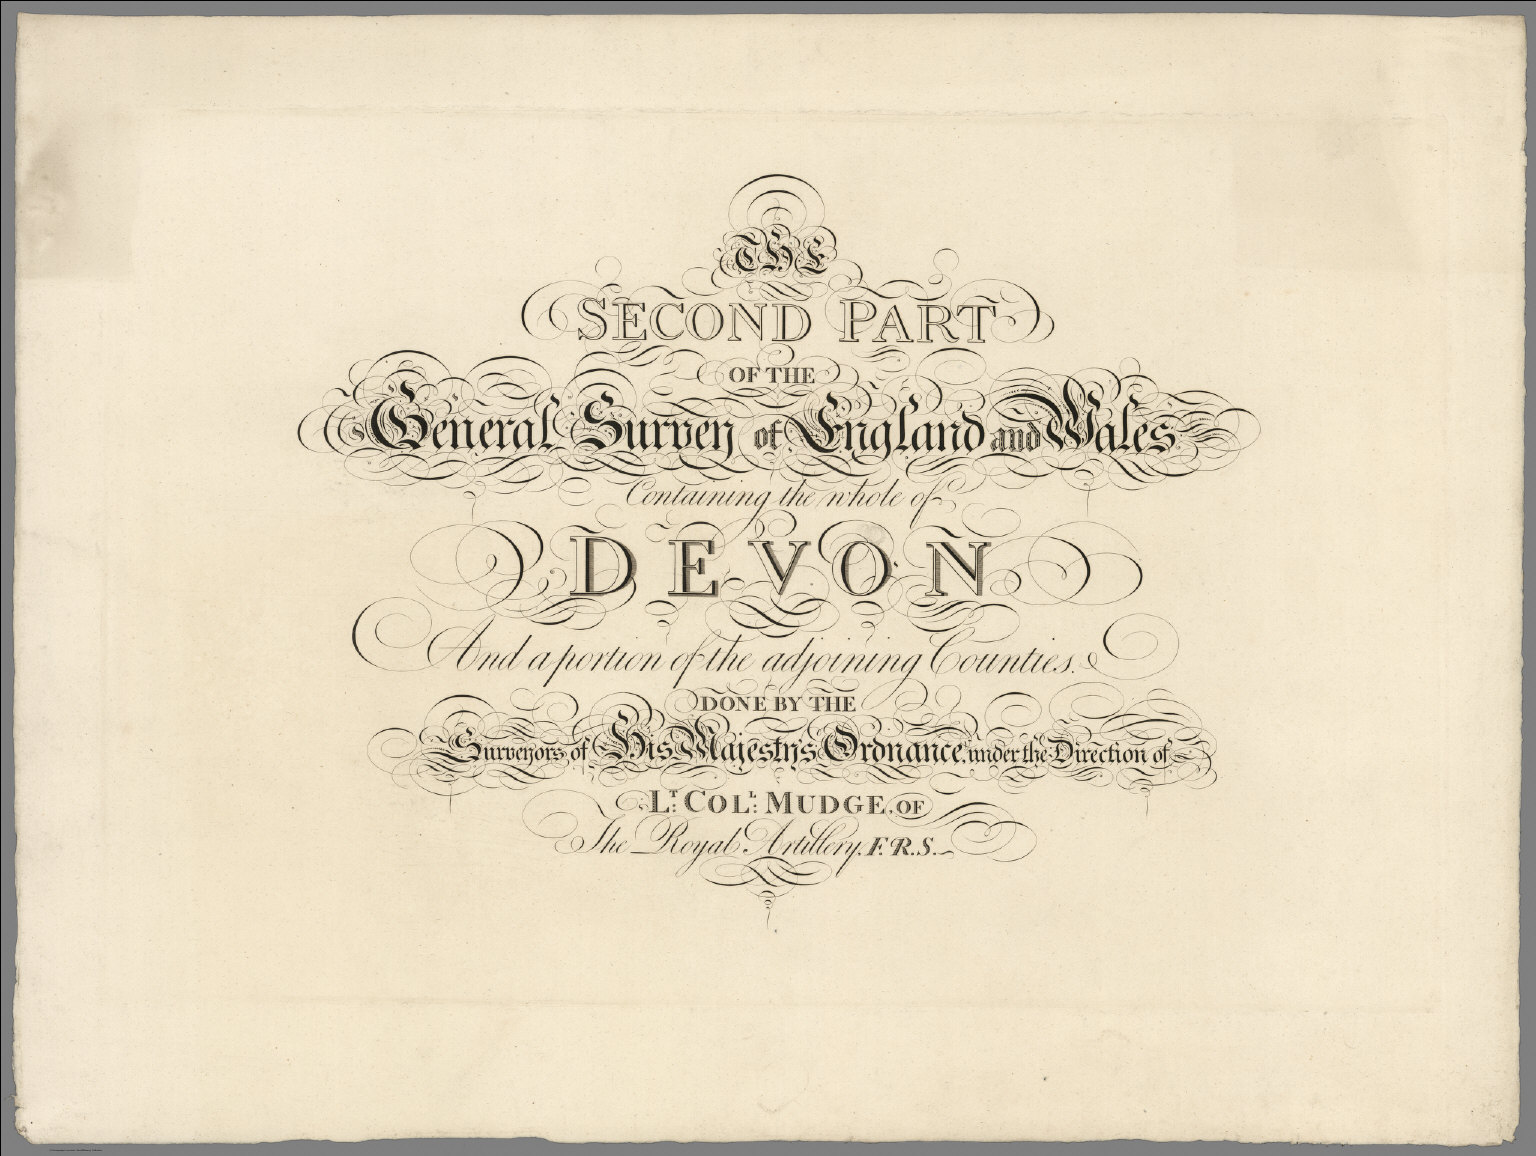 THE
SECOND PART
OF THE
General Survey of England and Wales
Containing the whole of
DEVON
And a portion of the adjoining Counties.
DONE BY THE
Surveyors of His Majesty's Ordnance, under the Direction of
LT. COLL. MUDGE, OF
The Royal Artillery, F.R.S.